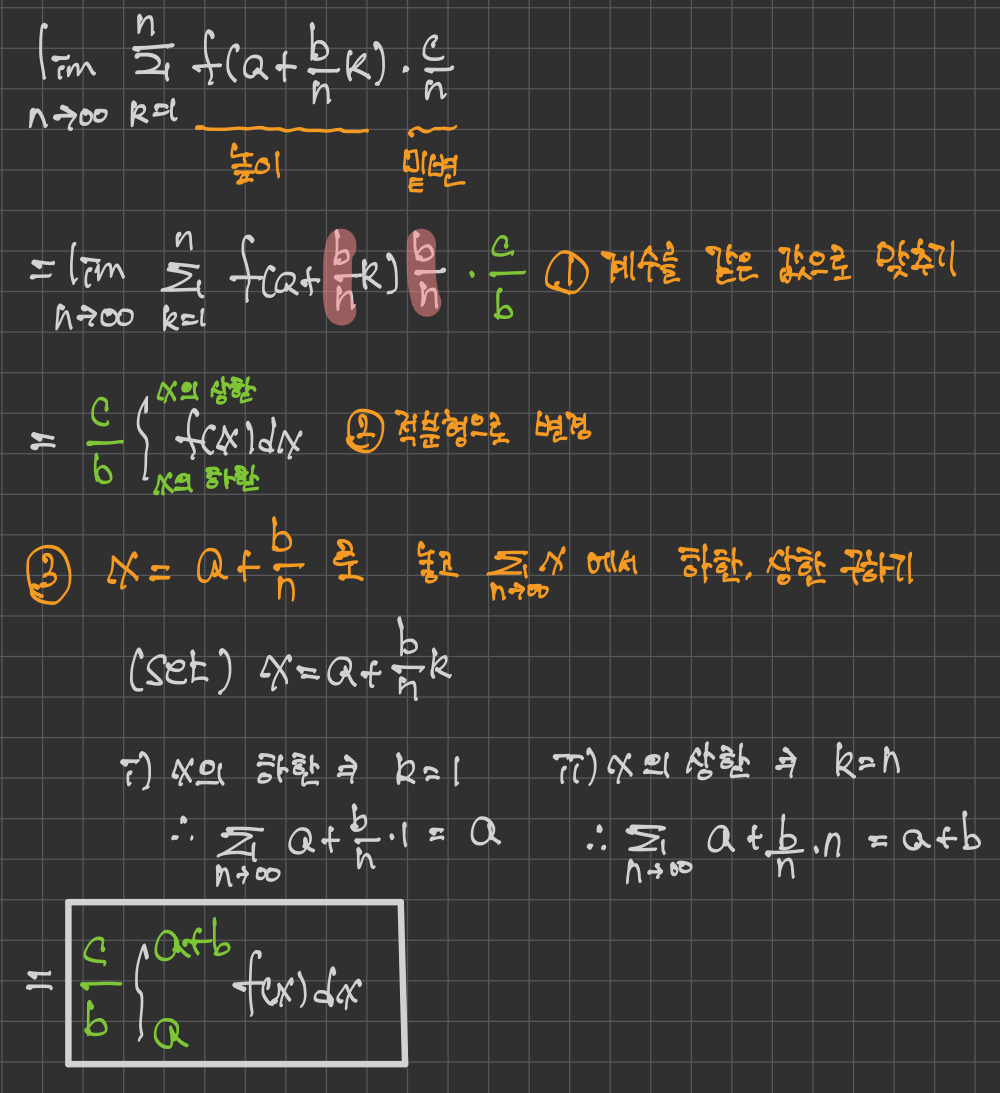 lim n→∞ Σ k=1 n f(a + b/n k) · c/n
높이 밑변
= lim n→∞ Σ k=1 n f(a + b/n k) b/n · c/b ① 계수를 같은 값으로 맞추기
= c/b ∫ x의 하한 x의 상한 f(x)dx ② 적분형으로 변경
③ x = a + b/n 로 놓고 Σ n→∞ x 에서 하한, 상한 구하기
(set) x = a + b/n k
i) x의 하한 ⇒ k=1 ii) x의 상한 ⇒ k=n
∴ Σ n→∞ a + b/n · 1 = a ∴ Σ n→∞ a + b/n · n = a+b
= c/b ∫ a a+b f(x)dx